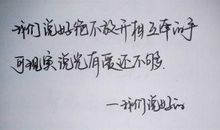 我们说好绝不放开相互牵的手
可现实说光有爱还不够
——我们说好的